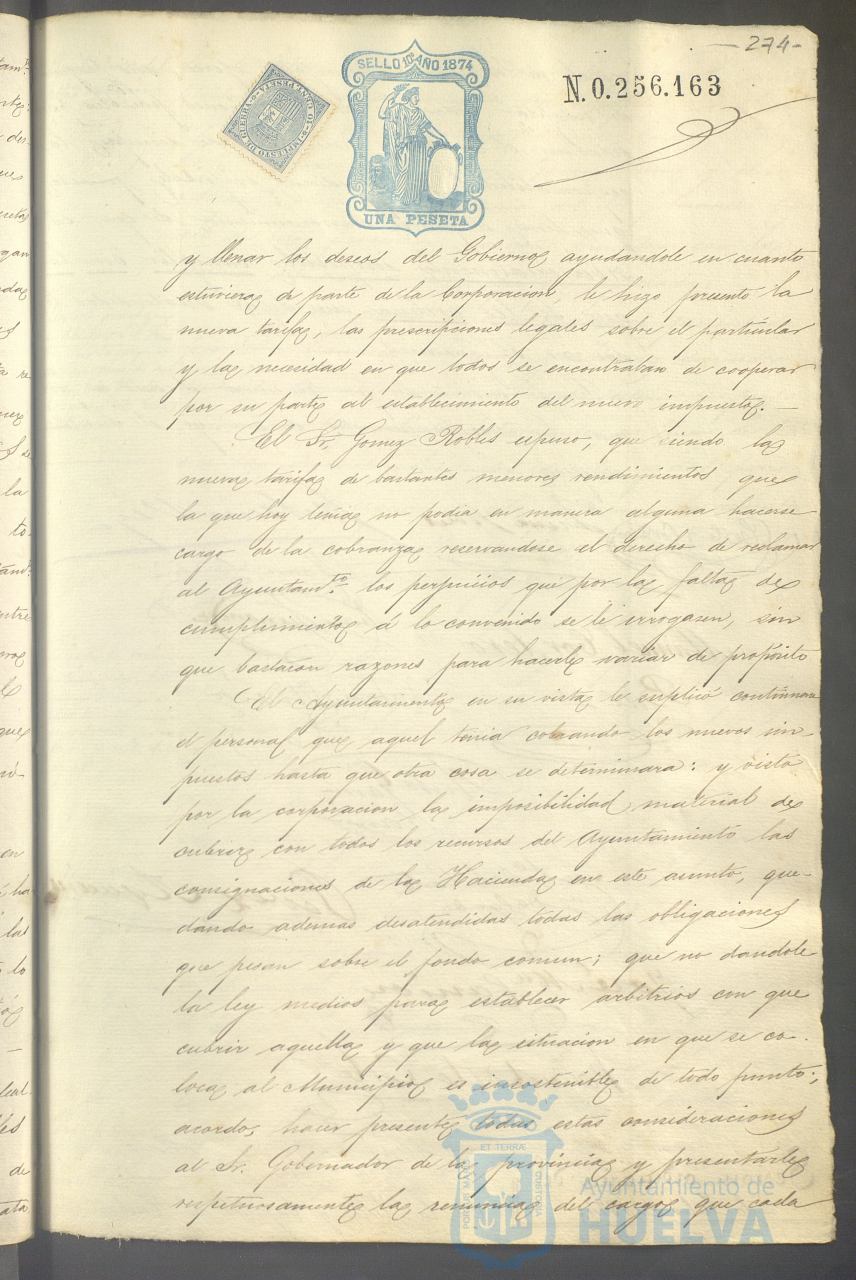 - 274 -
SELLO 10º AÑO 1874
UNA PESETA
IMPUESTO DE GUERRA
N.0.256.163
y llenar los deseos del Gobierno ayudandole en cuanto
estuviera de parte de la Corporacion, le hizo presente la
nueva tarifa, las prescripciones legales sobre el particular
y la necesidad en que todos se encontraban de cooperar
por su parte al establecimiento del nuevo impuesto. —
El Sr. Gomez Robles espuso, que siendo la
nueva tarifa de bastantes menores rendimientos que
la que hoy tenia no podia en manera alguna hacerse
cargo de la cobranza reservandose el derecho de reclamar
al Ayuntamto. los perjuicios que por la falta de
cumplimiento á lo convenido se le irrogasen, sin
que bastaran razones para hacerle variar de propósito
El Ayuntamiento en su vista le suplicó continuara
el personal que aquel tenia cobrando los nuevos im-
puestos hasta que otra cosa se determinara: y visto
por la corporacion la imposibilidad material de
cubrir con todos los recursos del Ayuntamiento las
consignaciones de la Hacienda en este asunto, que-
dando ademas desatendidas todas las obligaciones
que pesan sobre el fondo comun; que no dandole
la ley medios para establecer arbitrios con que
cubrir aquella y que la situacion en que se co-
loca al Municipio es insostenible de todo punto;
acordo, hacer presente todas estas consideraciones
al Sr. Gobernador de la provincia y presentarle
respetuosamente la renuncia del cargo que cada
PORTUS MARIS ET TERRÆ CUSTODIA
Ayuntamiento de
HUELVA